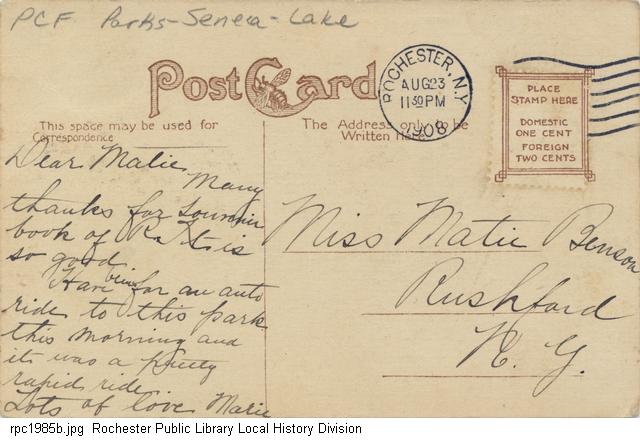 PCF Parks-Seneca-Lake
Post Card
ROCHESTER, N.Y.
AUG 23
11 30 PM
1908
PLACE
STAMP HERE
DOMESTIC
ONE CENT
FOREIGN
TWO CENTS
This space may be used for
Correspondence
The Address only to be
Written Here
Dear Matie
Many
thanks for souvenir
book of R. It is
so good.
Have been for an auto
ride to this park
this morning and
it was a pretty
rapid ride.
Lots of love Marie
Miss Matie Benson
Rushford
N. Y.
rpc1985b.jpg Rochester Public Library Local History Division